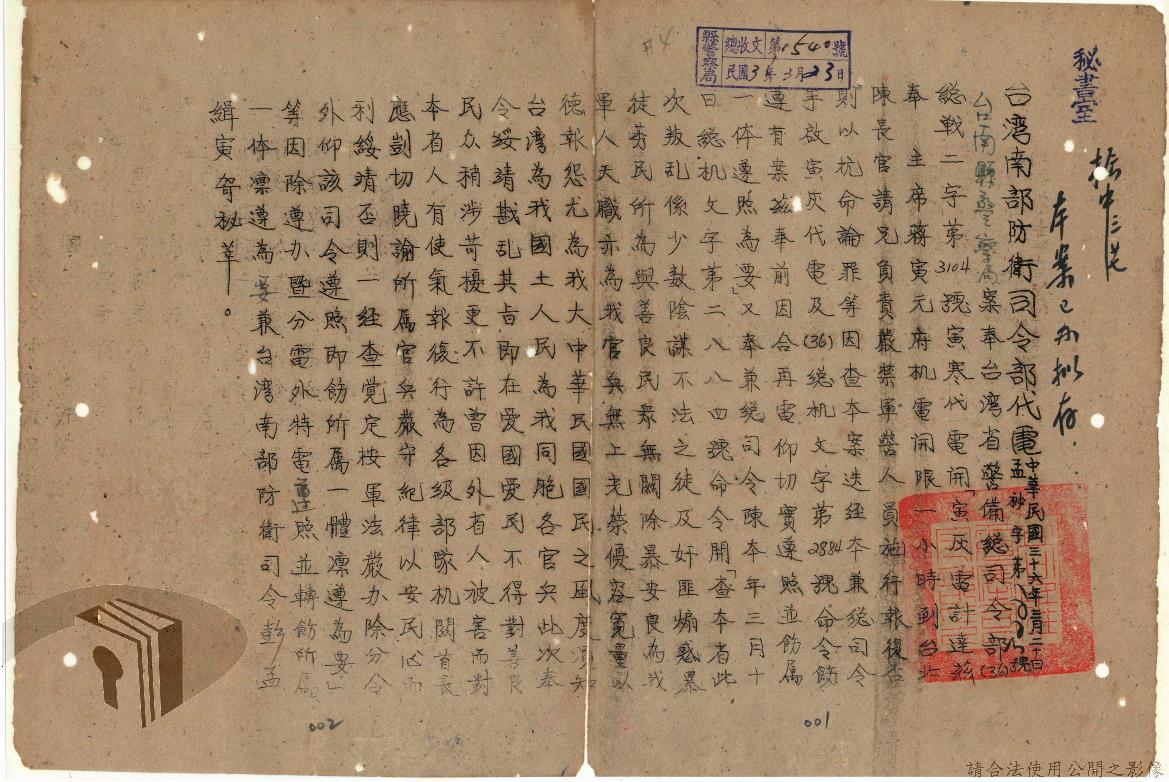 縣警察局
總收文 第1540號
民國3年3月23日
秘書室
本案已办拟存
台湾南部防衛司令部代電
中華民國三十六年三月二十日
孟秘字第
號
台南縣警察局案奉台湾省警備總司令部(36)
總戰二字第3104號寅寒代電開「寅灰電計達茲
奉 主席蔣寅元府机電開限一小時到台北
陳長官請兄負責嚴禁軍警人員施行報復否
則以抗命論罪等因查本案迭經本兼總司令
手啟寅灰代電及(36)総机文字第2884號命令飭
遵有案茲奉前因合再電仰切實遵照並飭属
一体遵照為要」又奉兼総司令陳本年三月十
日総机文字第二八八四號命令開「查本省此
次叛乱係少数陰謀不法之徒及奸匪煽惑暴
徒莠民所為與善良民眾無關除暴安良為我
軍人天職亦為我官兵無上光榮優容寬量以
德報怨尤為我大中華民國國民之風度須知
台湾為我國土人民為我同胞各官兵此次奉
令綏靖戡乱其旨即在愛國愛民不得對善良
民众稍涉苛擾更不許曾因外省人被害而對
本省人有使氣報復行為各级部隊机關首長
應剴切曉諭所属官兵嚴守紀律以安民心而
利綏靖否則一经查覚定按軍法嚴办除分令
外仰該司令遵照即飭所属一體凛遵為要」
等因除遵办暨分電外特電遵照並轉飭所属
一体凛遵為要兼台湾南部防衛司令彭孟
緝寅哿秘莘。
002
001
請合法使用公開之影像